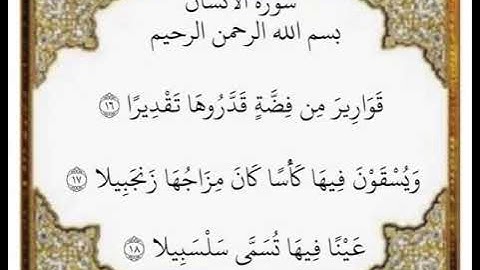 سورة الانسان
بسم الله الرحمن الرحيم
قَوَارِيرَ مِن فِضَّةٍ قَدَّرُوهَا تَقْدِيرًا ١٦
وَيُسْقَوْنَ فِيهَا كَأْسًا كَانَ مِزَاجُهَا زَنجَبِيلًا ١٧
عَيْنًا فِيهَا تُسَمَّى سَلْسَبِيلًا ١٨